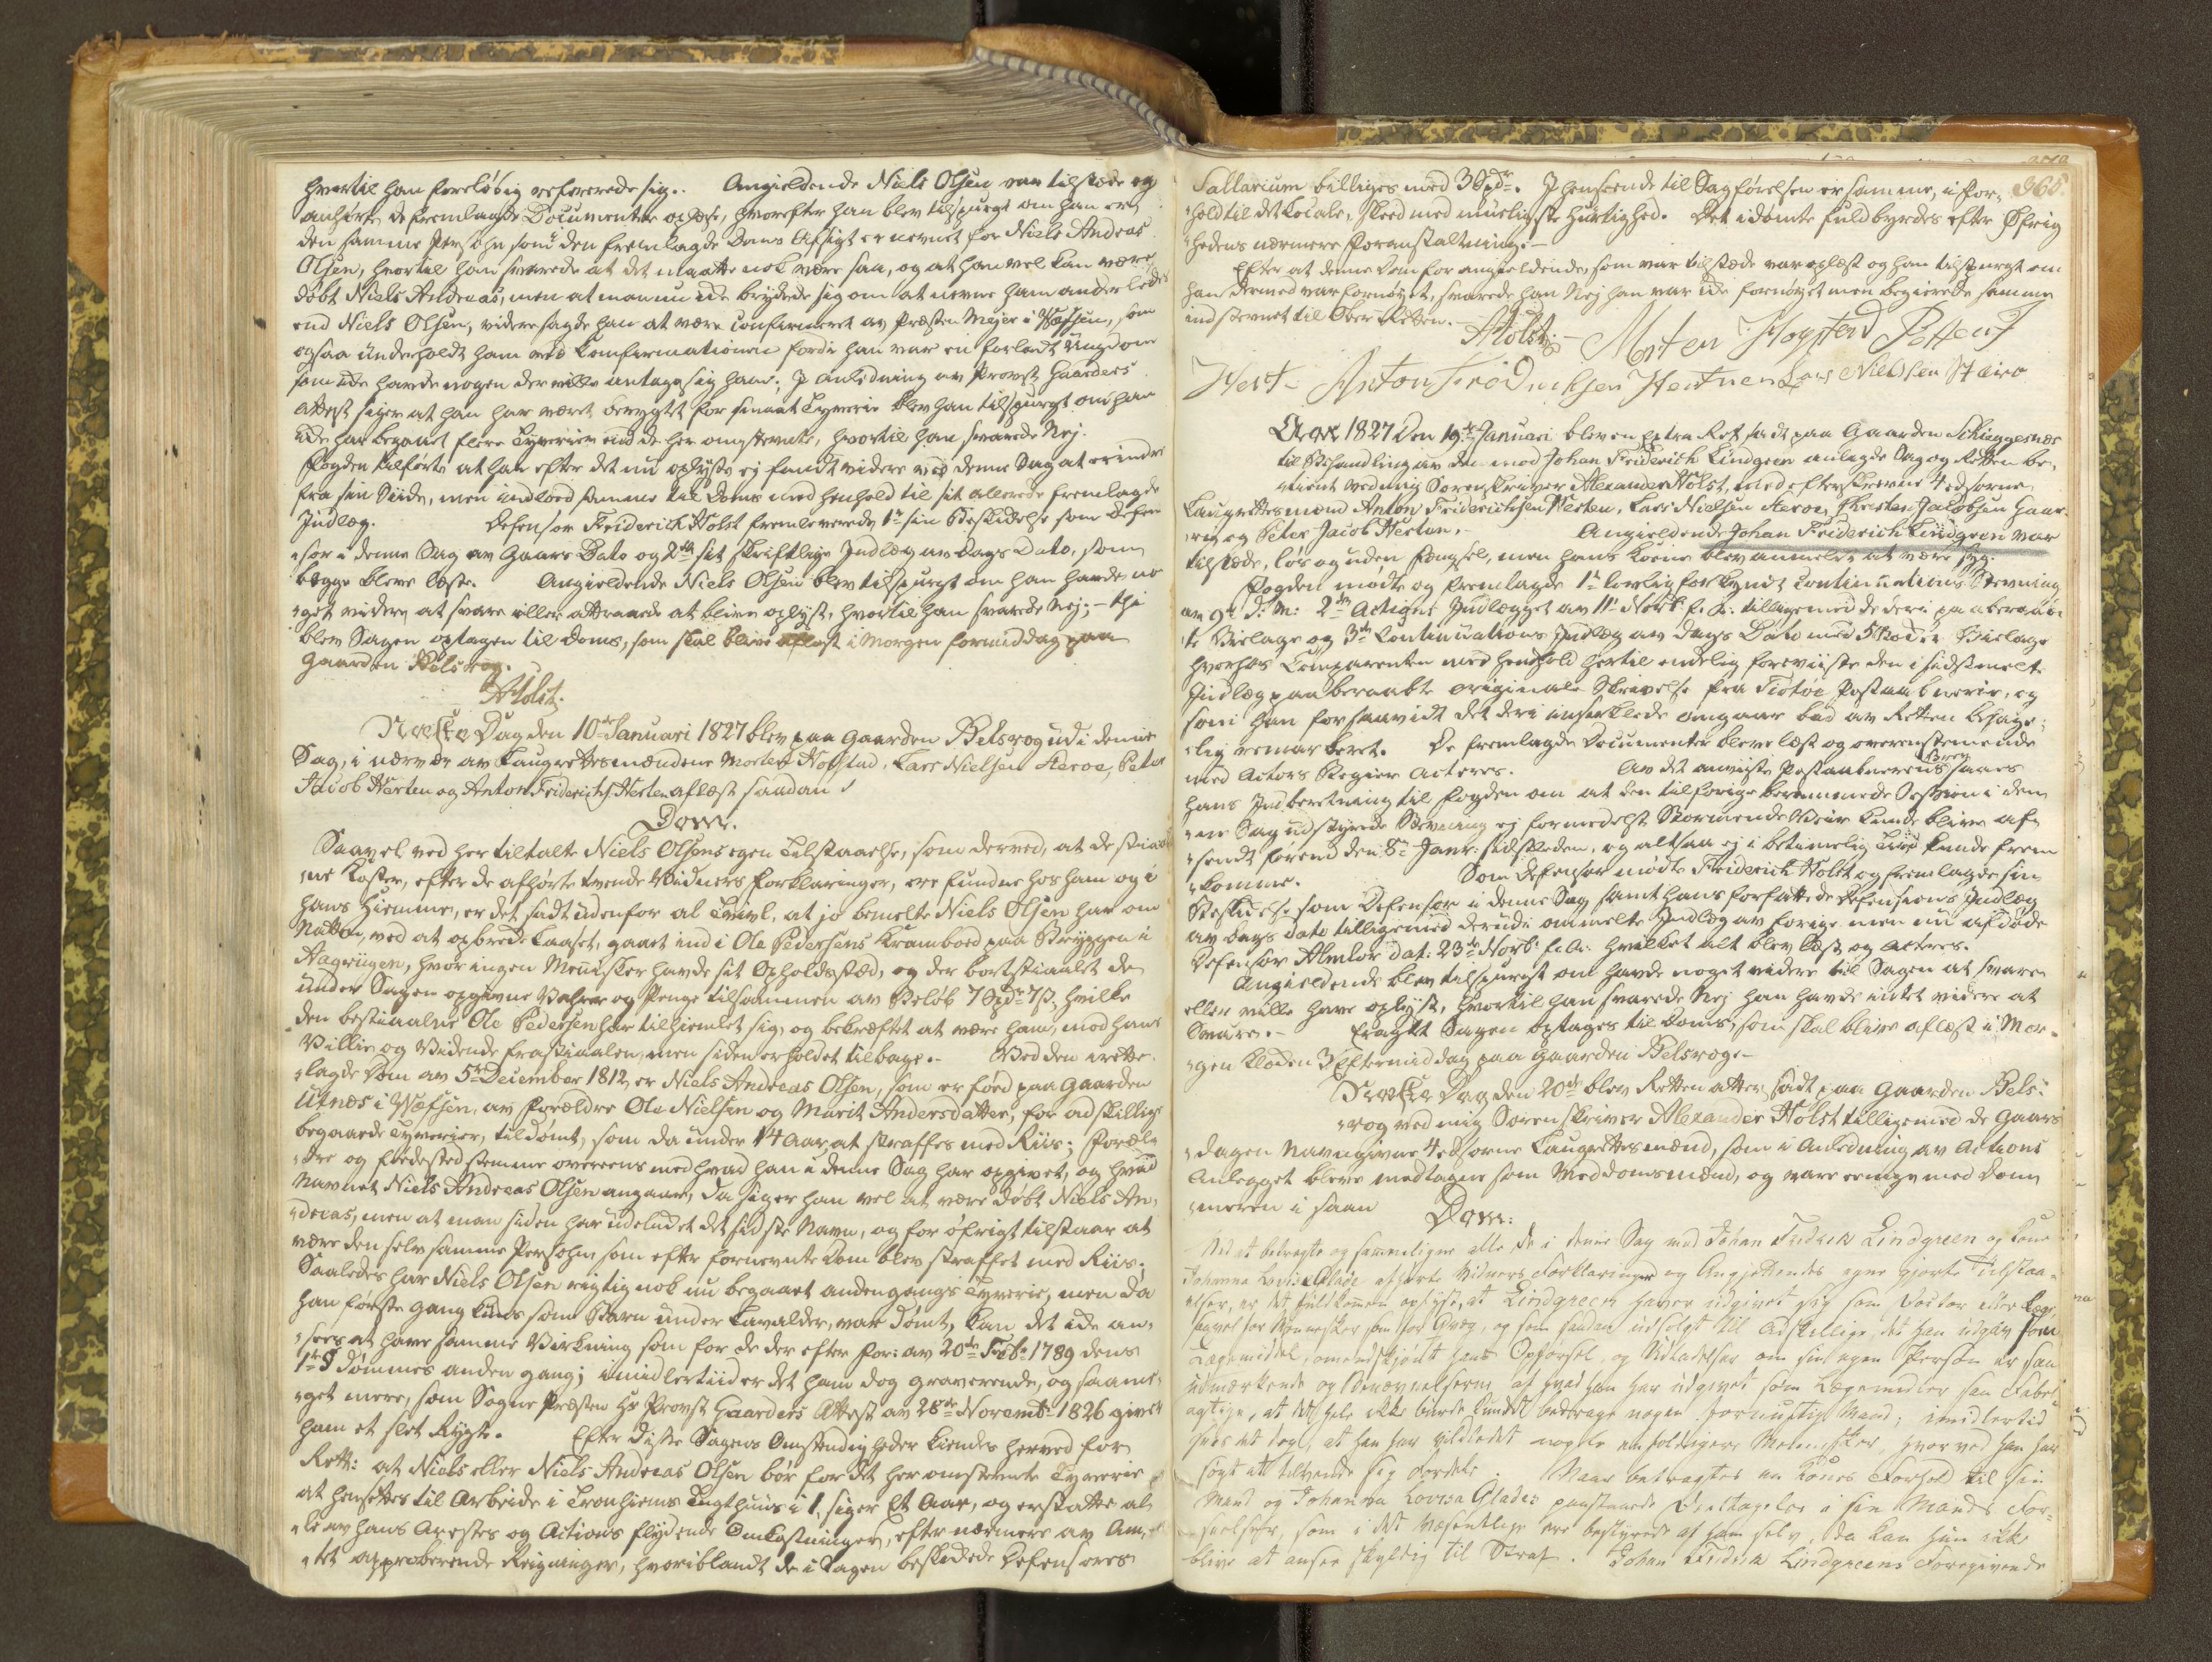 hvortil han foreløbig refererede sig. Angieldende Niels Olsen var tilstæde og
anhørte de fremlagde Documenter oplæse, hvorefter han blev tilspurgt om han er
den samme Persohn som i den fremlagde Doms Afsigt er nevnet for Niels Andreas
Olsen, hvortil han svarede at det maatte nok være saa, og at han vel kan være
døbt Niels Andreas, men at man nu ikke brydede sig om at nevne ham anderledes
end Niels Olsen, videre sagde han at være confirmeret av Præsten Mejer i Wefsen, som
ogsaa underholdt ham ved Confirmationen fordi han var en forladt Ungdom
som ikke havde nogen der ville antage sig ham; I Anledning av Provst Gaarders
Attest siger at han har været berygtet for smaat Tyverie blev han tilspurgt om han
ikke har begaaet flere Tyverier end de her omstevnte, hvortil han svarede Nej.
Fogden tilførte at han efter det nu oplyste ej fandt videre ved denne Sag at erindre
fra sin Siide, men indlod samme til Doms med henhold til sit allerede fremlagde
Indlæg. Defensor Friderich Holst fremleverede 1t sin Beskikkelse som Defen
sor i denne Sag av Gaars Dato og 2det sit skriftlige Indlæg av Dags Dato, som
begge bleve læste. Angieldende Niels Olsen blev tilspurgt om han havde no
get videre at svare eller attraaede at blive oplyst, hvortil han svarede Nej; - thi
blev Sagen optagen til Doms, som skal blive aflæst i Morgen formiddag paa
Gaarden Belsvog.
AHolst.
Næste Dag den 10de Januari 1827 blev paa Gaarden Belsvog udi denne
Sag, i nærvær av Laugrettesmændene Morten Hofstad, Lars Nielsen Steroe, Peter
Jacob Herten og Anton Friderichs. Herten aflæst saadan
Dom.
Saavel ved her tiltalte Niels Olsens egen Tilstaaelse, som derved, at de stiaal
ne Koster, efter de afhørte tvende Vidners forklaringer, ere fundne hos ham og i
hans Hiemme, er det sadt udenfor al Tvivl, at jo bemelte Niels Olsen har om
Natten, ved at opbrede Laaset, gaaet ind i Ole Pedersens Kramboed paa Bryggen i
Aagvigen, hvor ingen Mennisker havde sit Opholdsstæd, og der bortstiaalet de
under Sagen opgivne Vahrer og Penge tilsammen av Beløb 7 Spdr 7 s, hvilke
den bestiaalne Ole Pedersen har tilhiemlet sig, og bekræftet at være ham, mod hans
Villie og Vidende frastiaalen, men siden erholdet tilbage. Ved den i rette
lagde Dom av 5te December 1812 er Niels Andreas Olsen, som er fød paa Gaarden
Utnæs i Wefsen, av Forældre Ole Nielsen og Marit Andersdatter, for adskillige
begaaede Tyverier, tildømt, som da under 14 Aar at straffes med Riis; Foræl
dre og fødested stemme overeens med hvad han i denne Sag har opgivet, og hvad
Navnet Niels Andreas Olsen angaar, da siger han vel at være døbt Niels An
dreas, men at man siden har udeludet det sidste Navn, og for øfrigt tilstaar at
være den selv samme Persohn som efter fornevnte Dom blev straffet med Riis.
Saaledes har Niels Olsen rigtig nok nu begaaet andengangs Tyverie, men da
han første gang kuns som Barn under Lavalder, var dømt, kan det ikke an
sees at have samme Virkning som for de der efter for: av 20de Febr 1789 dens
1te § dømmes anden gang; imidlertiid er det ham dog graverende, og saame
get mere, som Sogne Præsten Hr Provst Gaarders Attest av 28de Novembr 1826 giver
ham et slet Rygte. Efter disse Sagens Omstendigheder kiendes herved for
Rett: at Niels eller Niels Andreas Olsen bør for det her omstevnte Tyverie
at hensettes til Arbeide i Tronhiems Tugthuus i 1, siger Et Aar, og erstatte al
le av hans Arestes og Actions flydende Omkostninger, efter nærmere av Am
tet approberende Regninger, hvoriblandt de i Sagen beskikkede Defensores
368.
Sallarium billiges med 3 Spdr. I henseende til Sagførelsen er samme, i for
hold til det Locale, skeed med muligste hurtighed. Det idømte fuldbyrdes efter Øfrig
hedens nærmere foranstaltning.
Efter at denne Dom for angieldende, som var tilstæde var oplæst og han tilspurgt om
han dermed var fornøyet, svarede han Nej han var ikke fornøyet men begierede samme
indstevnet til Over Retten.
AHolst. Morten Hogstad Petter J
Hert Anton Frødriksen Hertnen Lars Nielsen Steiro
Aar 1827 den 19de Januari blev en Extra Ret sadt paa Gaarden Schieggesnæs
til Behandling av den mod Johan Friderich Lindgreen anlagde Sag og Retten be
tient ved mig Sorenskriver Alexander Holst, med efterskrevne 4 edsorne
Laugrettesmænd Anton Friderichsen Herten, Lars Nielsen Steroe, Christen Jacobsen Haar
vig og Peter Jacob Herten. Angieldende Johan Friderich Lindgreen var
tilstæde, løs og uden Fængsel, men hans Kone blev anmeldt at være syg.
Fogden mødte og fremlagde 1t lovlig forkyndt Continuations Stevning
av 9de d: M: 2det Actions Indlægget av 11te Novb. f. A. tilligemed de deri paaberaab
te Bielage og 3de Continuations Indlæg av Dags Dato med 5 Bielage
hvorhos Comparenten med henhold hertil endelig foreviiste den i sidstmelte
Indlæg paaberaabte originale Skrivelse fra Tiøtøe Postaabnerie, og
som han forsaavidt det deri angaar bad av Retten behage
lig remarkeret. De fremlagde Documenter bleve læst og overenstemende
med Actors Begier Acteres. Av det anviiste Postaabnerens Brev saaes
hans Indberetning til Fogden om at den tilforige berammede Session i den
ne Sag udstyrede Stevning ej formedelst Stormende Veir kunde blive af
sendt førend den 8de Janr. sidstleden, og altsaa ej i betimelig Tiid kunde frem
komme. Som Defensor mødte Friderich Holst og fremlagde sin
Beskikkelse som Defensor i denne Sag samt hans forfattede Defensions Indlæg
av Dags Dato tilligemed derudi ommelte Indlæg av forige men nu afdøde
Defensor Almlov dat. 23de Novb. f. A. hvilket alt blev læst og Acteres.
Angieldende blev tilspurgt om havde noget videre til Sagen at svare
eller ville have oplyst, hvortil han svarede Nej han havde intet videre at
Svare. Eragtet Sagen optages til Doms, som skal blive aflæst i Mor
gen Kloden 3 Eftermiddag paa Gaarden Belsvog.
Næste Dag den 20de blev Retten atter sadt paa Gaarden Bels
vog ved mig Sorenskriver Alexander Holst tilligemed de Gaars
dagen Navngivne 4 edsorne Laugrettesmænd, som i Anledning av Actions
Anlegget bleve medtagne som Meddomsmænd, og vare eenige med Dom
meren i saan Dom:
Ved at betragte og sammenligne alle de i denne Sag mod Johan Fredrik Lindgreen og Kone
Johanna Lovisa Glade afhørte Vidners Forklaringer og Angjeldendes egne gjorte Tilstaa
elser, er det fuldkommen oplyst, at Lindgreen haver udgivet sig som Doctor eller Læge
saavel for Mennesker som for Qvæg, og som saadan udsolgt til Adskillige, det han udgav som
Lægemiddel, omendskjønt hans Opførsel, og Udladelser om sin egen Person er saa
udmærkende og Benævnelserne af hvad han har udgivet som Lægemidler saa Fabel
agtige, at det hele ikke burde kundet bedrage nogen fornuftig Mand; imidlertid
sees det dog, at han har vildledet nogle enfoldigere Mennesker, hvorved han har
søgt at tilvende sig Fordele. Naar betragtes en Kones Forhold til sin
Mand og Johanna Lovisa Glades paastaaede Deeltagelse i sin Mands For
seelser, som i det Væsentlige ere bestyrede af ham selv, da kan hun ikke
blive at ansee skyldig til Straf. Johan Fredrik Lindgreens Foregivende